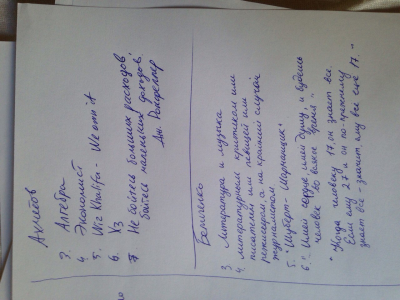 Ахметов
3. Алгебра
4. Экономист
5. Wiz Khalifa - We own it
6. Хз
7. Не бойтесь больших расходов,
бойтесь маленьких доходов.
Дж. Рокфеллер
3. Литература и музыка
4. литературным критиком или
писателем или певицей или
режиссером а на крайний случай
журналистом.
5. "Шуберт - Шарманщик"
6. "Имей сердце имей душу, и будешь
человек во всякое время"
"Когда человеку 17, он знает все.
Если ему 27 и он по-прежнему
знает все - значит, ему все ещё 17."